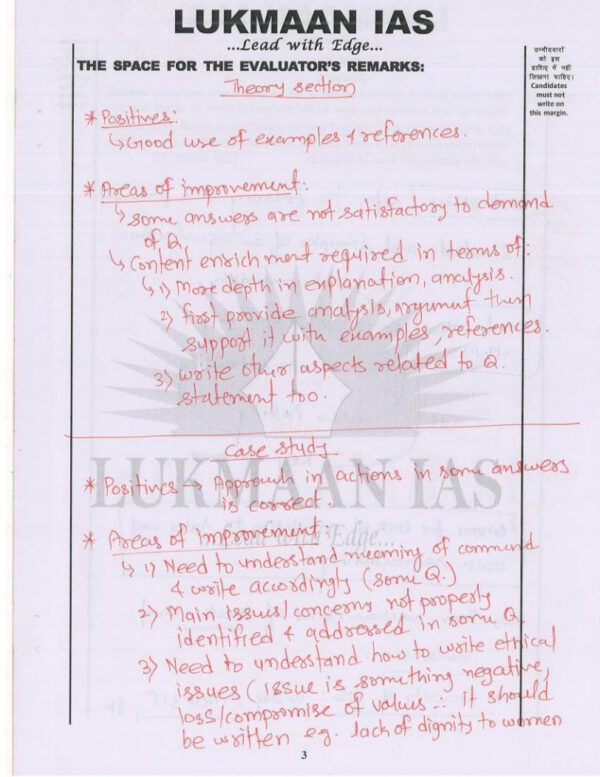 LUKMAAN IAS
...Lead with Edge...
THE SPACE FOR THE EVALUATOR'S REMARKS:
उम्मीदवारों
को इस
हाशिए में नहीं
लिखना चाहिए।
Candidates
must not
write on
this margin.
Theory section
* Positives:
↳ Good use of examples & references.
* Areas of improvement:
↳ some answers are not satisfactory to demand
of Q.
↳ Content enrichment required in terms of:
↳ 1) More depth in explanation, analysis.
2) first provide analysis, argumnt then
support it with examples, references.
3) write other aspects related to Q.
statement too.
Case study
LUKMAAN IAS
* Positives → Approach in actions in some answers
is correct.
Lead with Edge...
* Areas of improvement:
↳ 1) Need to understand meaning of command
& write accordingly (some Q.)
2) Main issues/concerns not properly
identified & addressed in some Q.
3) Need to understand how to write ethical
issues (issue is something negative,
loss/compromise of values ∴ it should
be written eg. lack of dignity to women
3